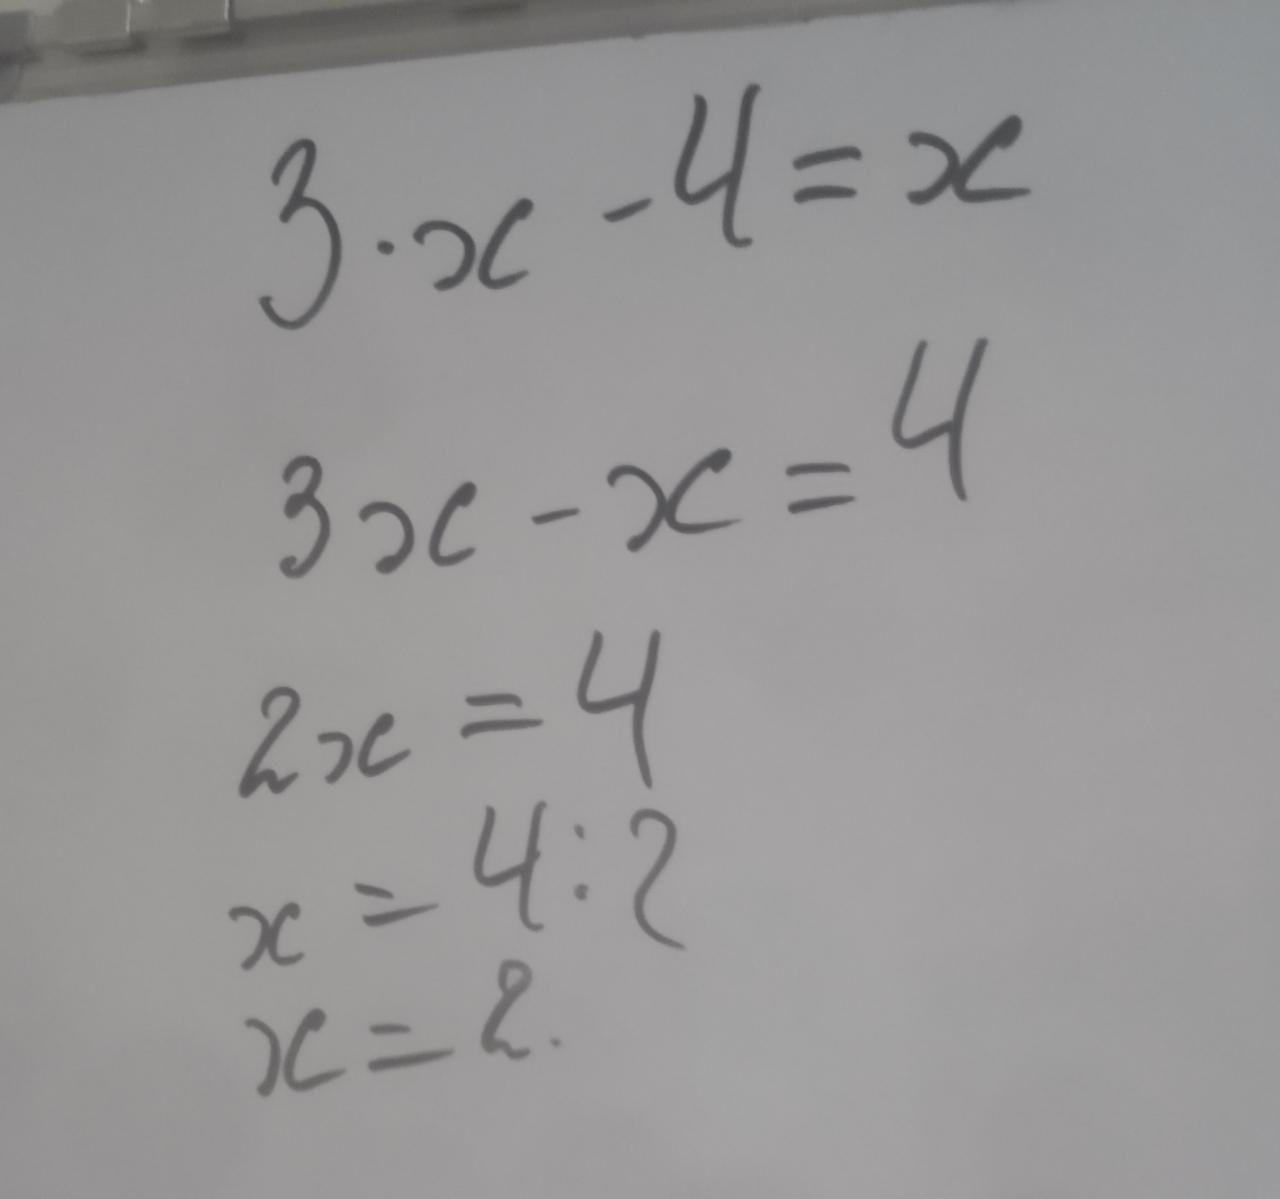 3·x - 4 = x
3x - x = 4
2x = 4
x = 4 : 2
x = 2.